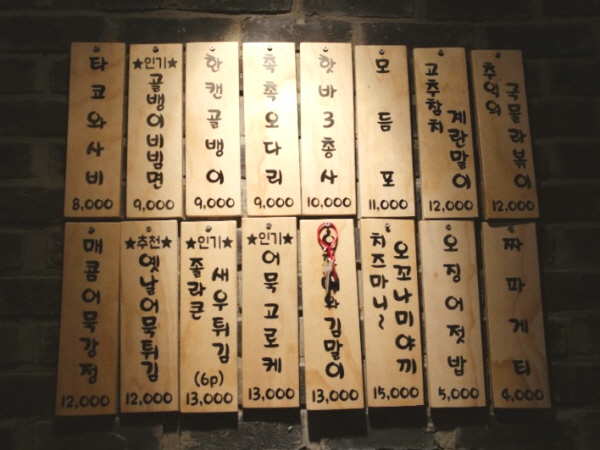 타코와사비
8,000
★인기★
골뱅이비빔면
9,000
한캔골뱅이
9,000
촉촉오다리
9,000
핫바3총사
10,000
모듬포
11,000
고추참치
계란말이
12,000
추억의
국물라볶이
12,000
매콤어묵강정
12,000
★추천★
옛날어묵튀김
12,000
★인기★
졸라큰
새우튀김
(6p)
13,000
★인기★
어묵고로케
13,000
와김말이
13,000
치즈마니~
오꼬나미야끼
15,000
오징어젓밥
5,000
짜파게티
4,000